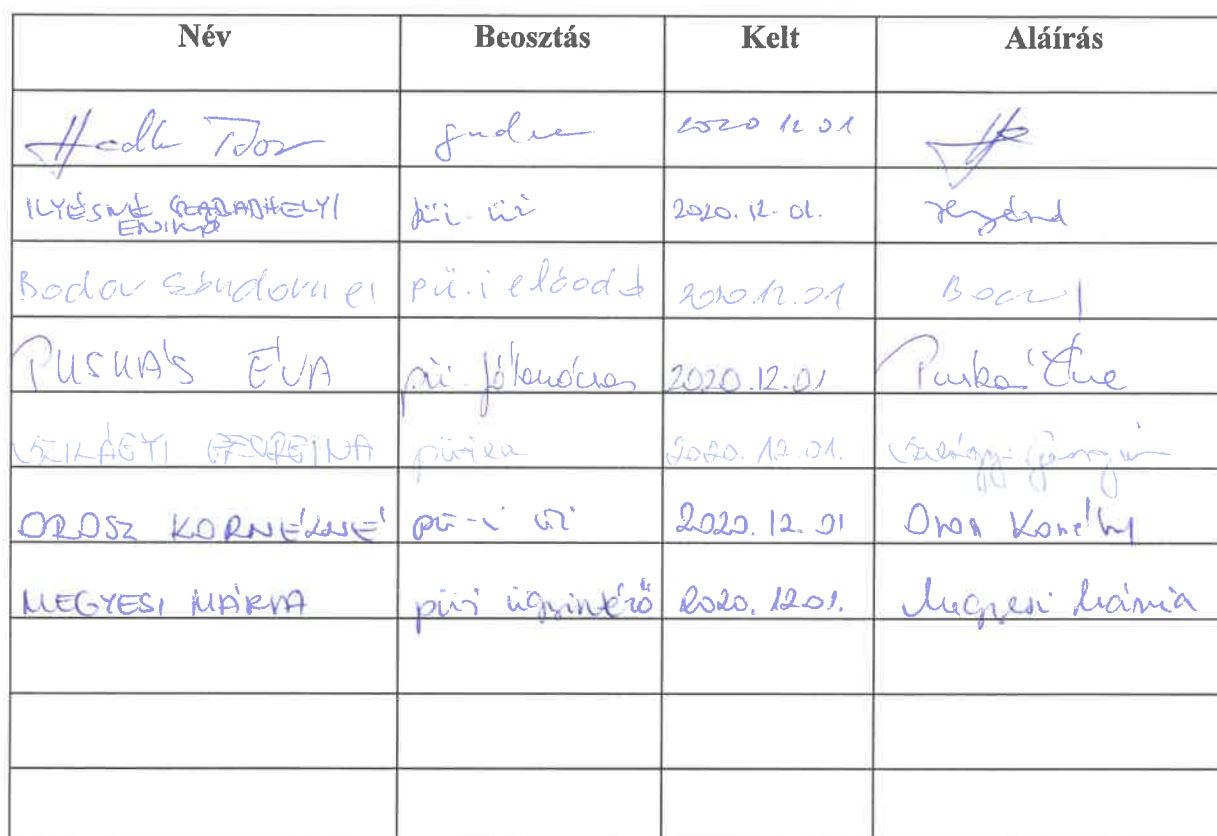 Név Beosztás Kelt Aláírás
2020 12 01
ILYÉSNÉ SZABADHELYI
ENIKŐ pü.i. üi 2020. 12. 01.
Bodor Sándorné pü.i előadó 2020.12.01
PUSKÁS ÉVA pü. 2020.12.01 Puskás Éva
SZILÁGYI GEORGINA 2020. 12. 01. Szilágyi Georgina
OROSZ KORNÉLNÉ pü-i üi 2020. 12. 01 Orosz Kornélné
MEGYESI MÁRIA püi ügyintéző 2020. 12.01. Megyesi Mária